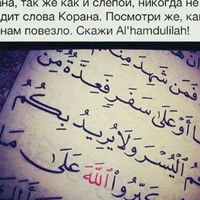 на, так же как и слепой, никогда не
дит слова Корана. Посмотри же, ка
нам повезло. Скажи Al'hamdulilah!
فَمَن شَهِدَ مِنكُ
أَوْ عَلَىٰ سَفَرٍ فَعِدَّةٌ مِّنْ
الْيُسْرَ وَلَا يُرِيدُ بِكُمُ
اللَّهَ عَلَىٰ مَا